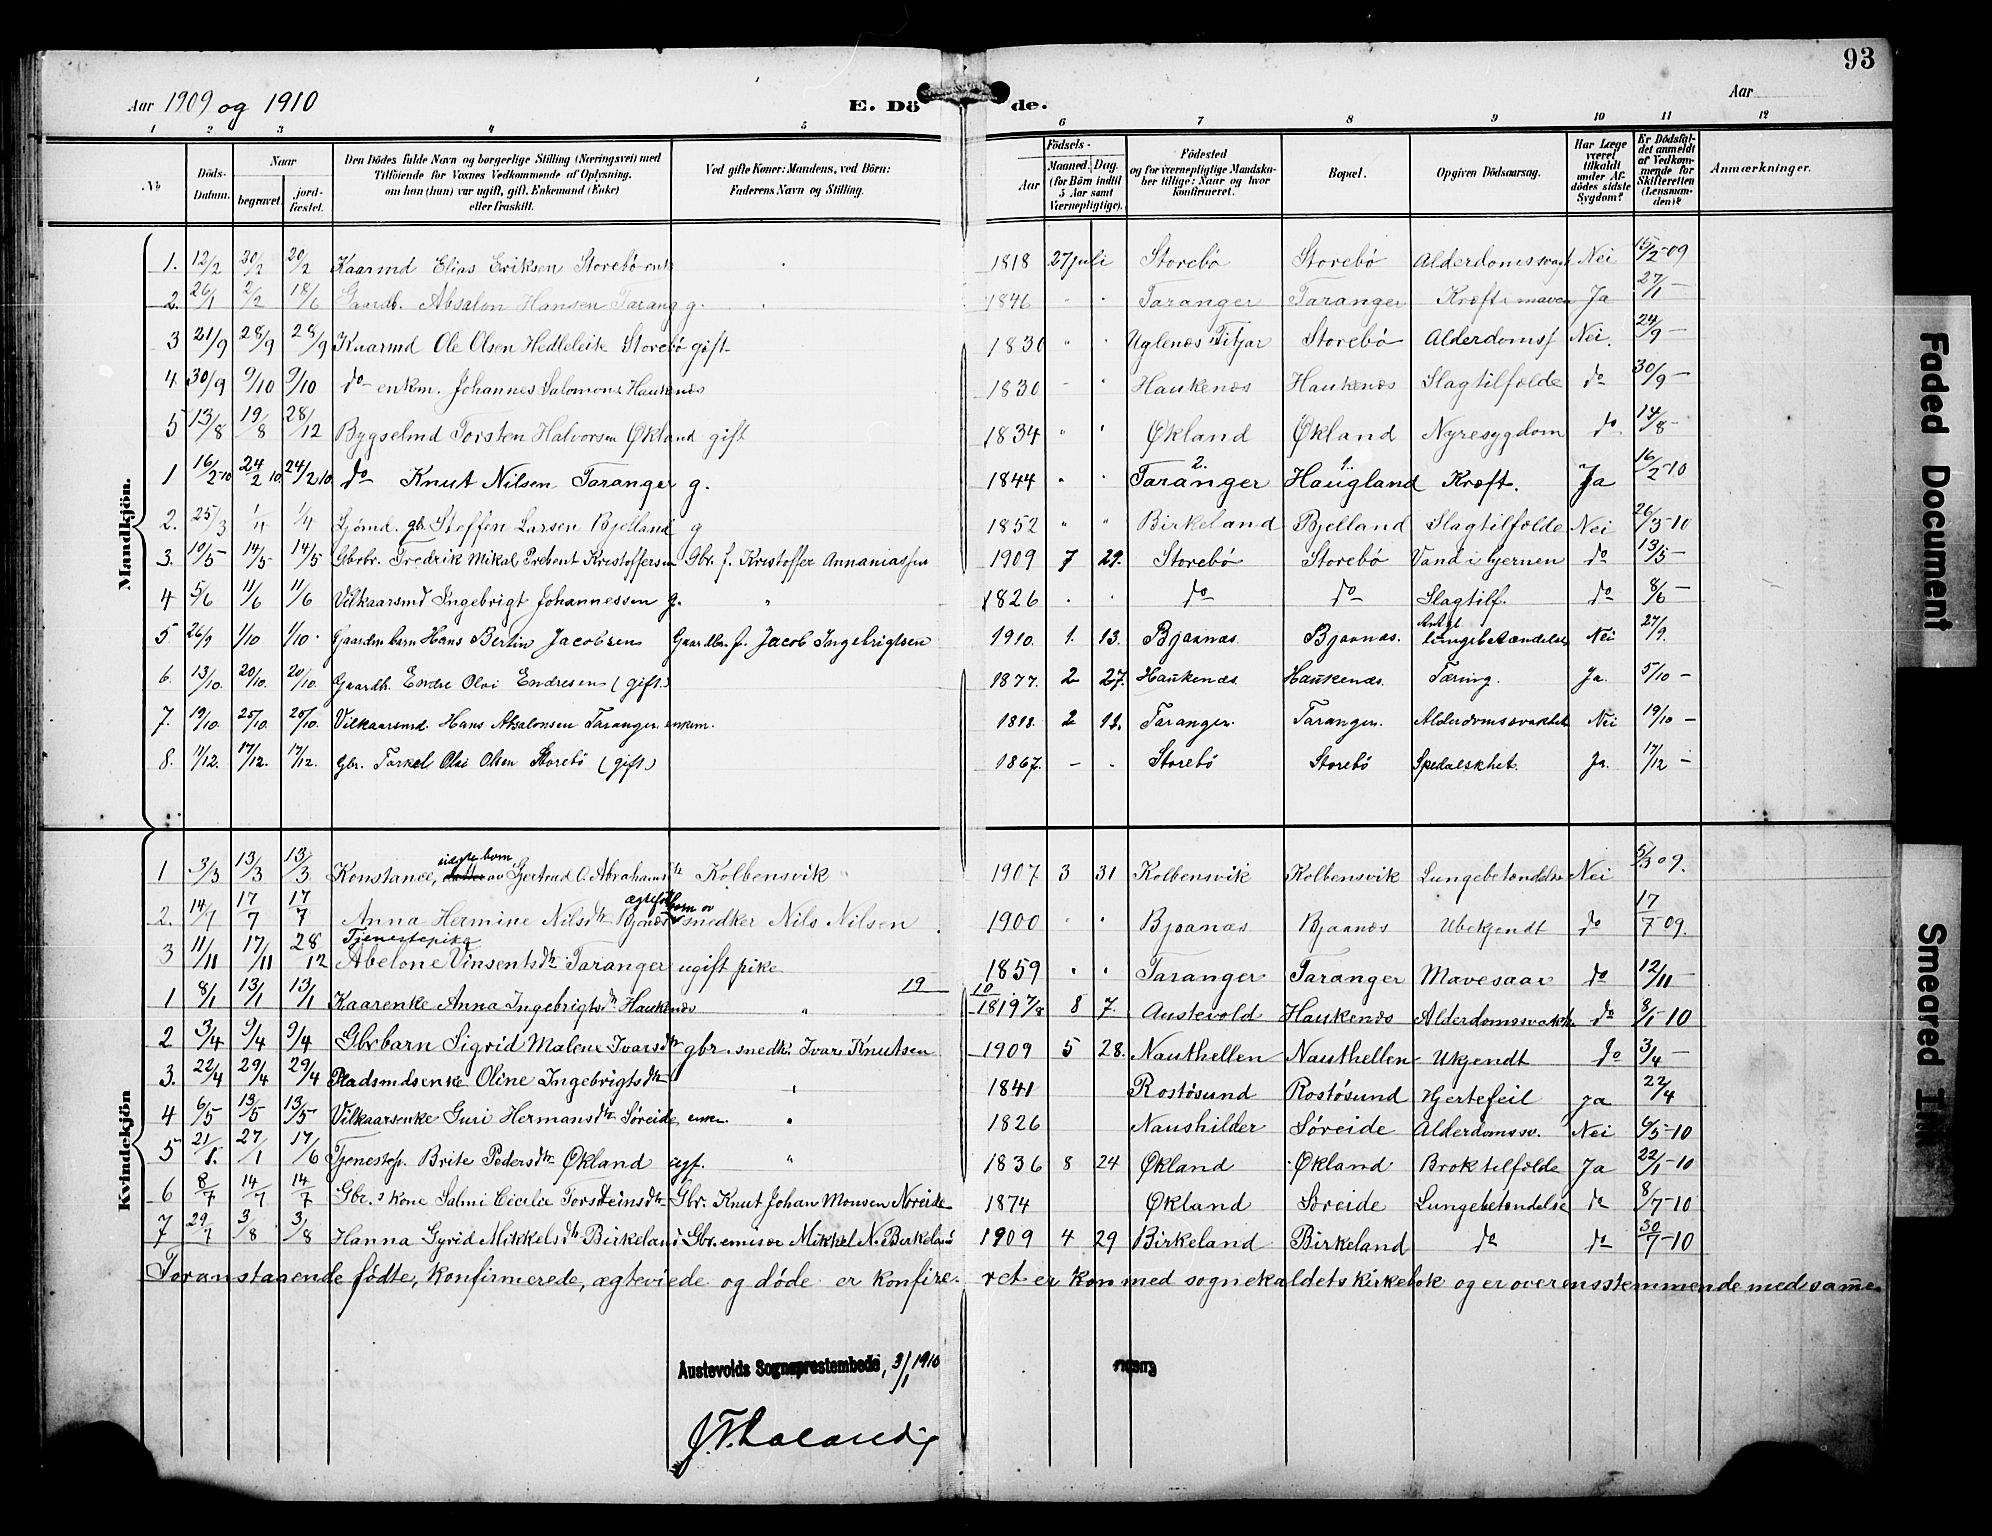 93
Aar 1909 og 1910 E. Döde. Aar
1 2 3 4 5 6 7 8 9 10 11 12
№ Döds-Datum. Naar begravet. jordfæstet. Den Dödes fulde Navn og borgerlige Stilling (Næringsvei) med Tilföiende for Voxnes Vedkommende af Oplysning, om han (hun) var ugift, gift, Enkemand (Enke) eller fraskilt. Ved gifte Koner: Mandens, ved Börn: Faderens Navn og Stilling. Födsels- Aar Maaned. Dag. (for Börn indtil 5 Aar samt Værnepligtige). Födested og for værnepligtige Mandskaber tillige: Naar og hvor konfirmeret. Bopæl. Opgiven Dödsaarsag. Har Læge været tilkaldt under Afdödes sidste Sygdom? Er Dödsfaldet anmeldt af Vedkommende for Skifteretten (Lensmanden)? Anmærkninger.
Mandkjön.
1. 12/2 20/2 20/2 Kaarmd Elias Eriksen Storebö enk 1818 27 juli Storebö Storebö Alderdomssvak Nei 15/2-09
2. 26/1 2/2 18/6 Gaardb. Absalon Hansen Tarang g. 1846 " " Taranger Taranger Kræft i maven Ja 27/1 -
3 21/9 28/9 28/9 Kaarmd Ole Olsen Hedleleik Storebö gift 1830 " " Uglenæs Fitjar Storebö Alderdomsf Nei. 24/9 -
4 30/9 9/10 9/10 do enkm. Johannes Salomons Haukenæs 1830 - " Haukenæs Haukenæs Slagtilfælde do 30/9 -
5 13/8 19/8 28/12 Bygselmd Torsten Halvorsen Økland gift 1834 " " Økland Økland Nyresygdom do 14/8 -
1 16/2-10 24/2 10 24/2 10 do Knut Nilsen Taranger g. 1844 " " 2. Taranger 1. Haugland Kræft. Ja 16/2-10
2. 25/3 1/4 1/4 Gjömd. gb. Steffen Larsen Bjelland g 1852 " " Birkeland Bjelland Slagtilfælde Nei 26/3-10
3. 10/5 14/5 14/5 Gbrbr. Fredrik Mikal Prebent Kristoffersen Gbr. f. Kristoffer Annaniassen 1909 7 29. Storebö Storebö Vand i hjernen do 13/5 -
4 5/6 11/6 11/6 Vilkaarsmd Ingebrigt Johannessen g. " 1826 . . do do Slagtilf. do 8/6 -
5 26/9 1/10 1/10 Gaardm barn Hans Bertin Jacobsen Gaardbr. f. Jacob Ingebrigtsen 1910. 1. 13. Bjaanæs. Bjaanæs. lungebetændelse Nei 27/9.
6. 13/10. 20/10. 20/10. Gaardb. Endre Olai Endresen (gift.) 1877. 2 27. Haukenæs. Haukenæs. Tæring. Ja. 5/10 -
7. 19/10. 25/10. 25/10. Vilkaarsmd. Hans Absalonsen Taranger. enkm. 1818. 2 12. Taranger. Taranger. Alderdomssvakhet Nei 19/10 -
8. 11/12. 17/12. 17/12. Gbr. Torkel Olai Olsen Storebö (gift.) 1867. - . Storebö Storebö Spedalskhet. Ja. 17/12 -
Kvindekjön
1 3/3 13/3 13/3 Konstance, uægte barn av Gjertrud O. Abrahamsdtr Kolbensvik 1907 3 31 Kolbensvik Kolbensvik Lungebetændelse Nei 5/3 09.
2. 14/7 17/7 17/7 Anna Hermine Nilsdtr Bjonæs ægtefød barn av snedker Nils Nilsen 1900 " " Bjaanæs Bjaanæs Ubekjendt do 17/7 09.
3 11/11 17/11 28/12 Tjenestepike Abelone Vinsentsdtr Taranger ugift pike 1859 " " Taranger Taranger Mavesaar do 12/11 -
19 10
1 8/1 13/1 13/1 Kaarenke Anna Ingebrigtsdtr Haukenæs " 1819 7/8 8 7. Austevold Haukenæs Alderdomssvakh. do 3/1-10
2 3/4 9/4 9/4 Gbrbarn Sigrid Malene Ivarsdtr gbr. snedk. Ivar Knutsen 1909 5 28. Nauthellen Nauthellen Ukjendt do 3/4 -
3. 22/4 29/4 29/4 Pladsmdsenke Oline Ingebrigtsdtr " 1841 Rostösund Rostösund Hjertefeil Ja 22/4
4 6/5 13/5 13/5 Vilkaarsenke Guri Hermansdtr Söreide, enke. " 1826 Naushilder Söreide Alderdomssv. Nei 6/5-10
5 21/1. 27/1 17/6 Tjenestep. Brite Pedersdtr Økland ugf. " 1836 8 24 Økland Økland Broktilfælde Ja 22/1-10
6 8/7 14/7 14/7 Gbr.s kone Salmi Cecilie Torsteinsdtr Gbr. Knut Johan Monsen Noreide 1874 Økland Søreide Lungebetændelse do 8/7-10
7 29/7 3/8 3/8 Hanna Gyrid Mikkelsdtr Birkeland Gbr. emisær Mikkel N. Birkeland 1909 4 29 Birkeland Birkeland do do 30/7-10
Foranstaaende fødte, konfirmerede, ægteviede og døde er konfereret er kon med sognekaldets kirkebok og er overensstemmende med samme
Austevolds Sogneprestembede, 3/1 1910
Faded Document
Smeared Ink